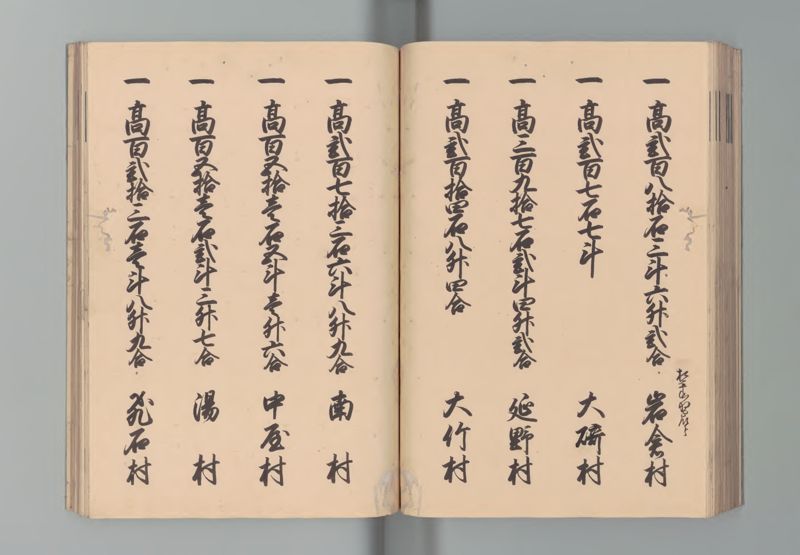 一 高弐百八拾石三斗六升弐合 岩倉村
一 高弐百七石七斗 大碕村
一 高三百九拾七石弐斗四升弐合 延野村
一 高弐百拾四石八升四合 大竹村
一 高弐百七拾三石六斗八升九合 南 村
一 高百五拾壱石五斗壱升六合 中 村
一 高百五拾壱石弐斗三升七合 湯 村
一 高百弐拾三石壱斗八升九合 石村